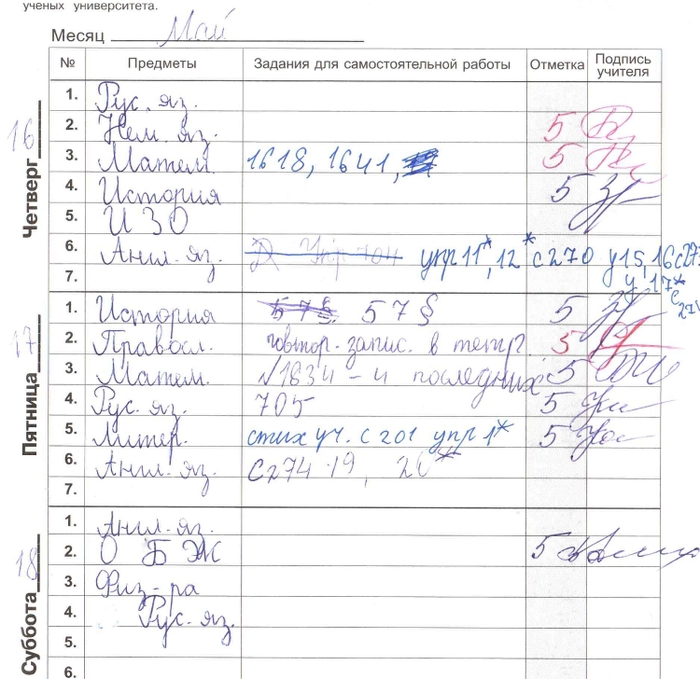 ученых университета.
Месяц Май
№ Предметы Задания для самостоятельной работы Отметка Подпись учителя
Четверг 16
1. Рус. яз.
2. Нем. яз. 5
3. Матем. 1618, 1641, 5
4. История 5
5. ИЗО
6. Англ. яз. упр 11*, 12* с 270 у 15, 16 с 27
7. у 17* с 271
Пятница 17
1. История 57 § 5
2. Правосл. повтор. запис. в тетр. 5
3. Матем. №1834 - 4 последних 5
4. Рус. яз. 705 5
5. Литер. стих уч. с 201 упр 1* 5
6. Англ. яз. с 274 19, 20*
7.
Суббота 18
1. Англ. яз.
2. ОБЖ 5
3. Физ-ра
4. Рус. яз.
5.
6.